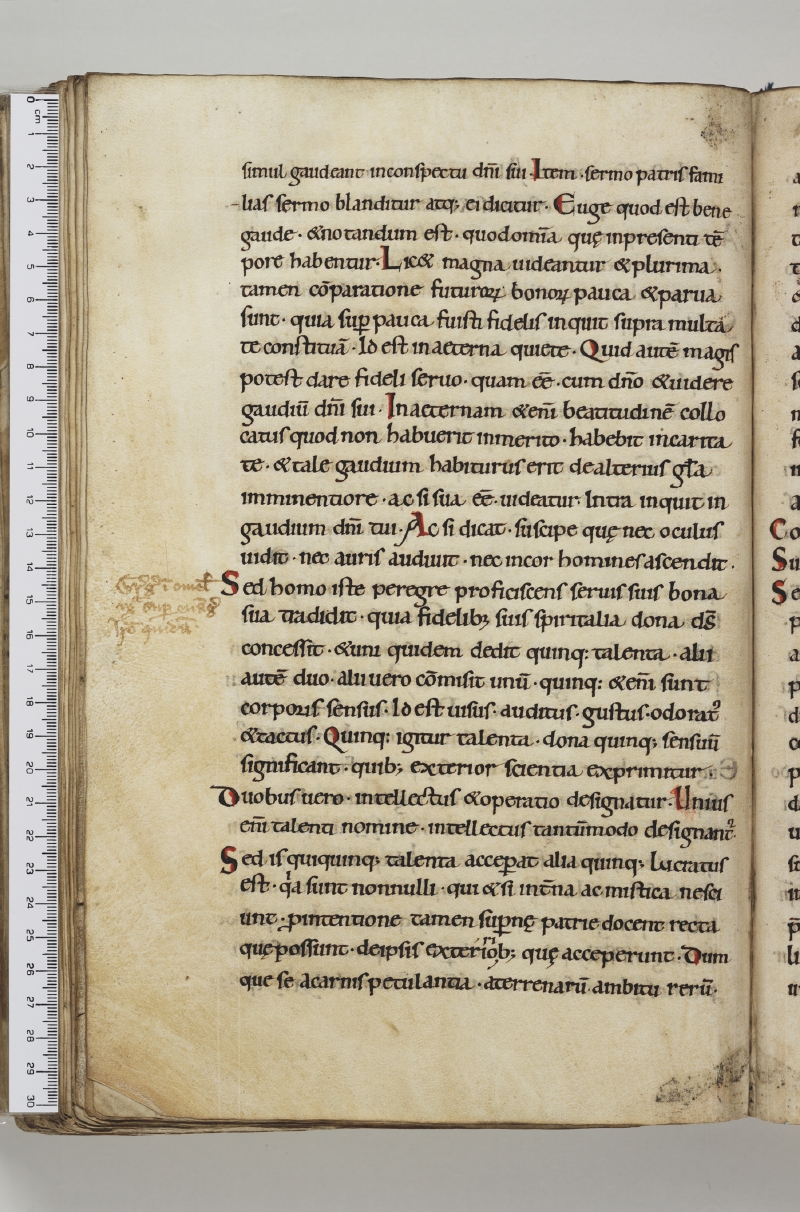 simul gaudeant inconspectu dñi sui. Item. sermo patris fami
lias sermo blanditur atq; ei dicitur. Euge quod est bene
gaude. & notandum est. quod omīa quę inpresenti tē
pore habentur. Lic& magna uideantur & plurima.
tamen cōparatione futuroꝝ bonoꝝ pauca & parua
sunt. quia suꝑ pauca fuisti fidelis inquit supra multa
te constituā. Id est in aeterna quiete. Quid autē magis
potest dare fideli seruo. quam ēē. cum dño & uidere
gaudiū dñi sui. In aeternam & enī beatitudinē collo
catus quod non habuerit inmerito. habebit incarita
te. & tale gaudium habiturus erit de alterius gła
imminentiore. ac si sua ēē. uideatur. Intra inquit in
gaudium dñi tui. Ac si dicat. suscipe quę nec oculus
uidit. nec auris audiuit. nec incor homines ascendit.
Sed homo iste peregre proficiscens seruis suis bona
sua tradidit. quia fidelib; suis spiritalia dona dš
concessit. & uni quidem dedit quinq: talenta. alii
autē duo. alii uero cōmisit unū. quinq: & enī sunt
corporis sensus. Id est uisus. auditus. gustus. odoratꝰ
& tactus. Quinq: igitur talenta. dona quinq; sensuū
significant. quib; exterior scientia exprimitur.
Duobus uero. intellectus & operatio designatur. Unius
enī talenti nomine. intellectus tantūmodo designant᷑.
Sed is qui quinq; talenta acceꝑat alia quinq; lucratus
est. qͣa sunt nonnulli. qui & si int̄na ac mistica nesci
unt. ꝑ intentione tamen suꝑnę patrie docent recta
quę possunt. de ipsis exteriorib; quę acceperunt. Dum
que se a carnis petulantia. a terrenarū ambitu rerū.